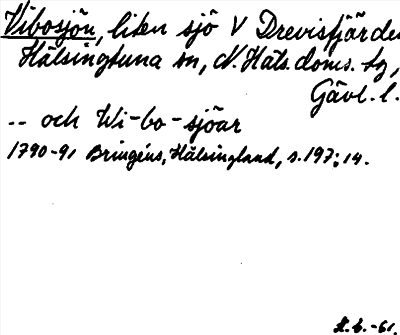 Vibosjön, liten sjö V Drevisfjärden
Hälsingtuna sn, N. Häls. doms. tg,
Gävl. l.
-- och Wi-bo-sjöar
1790-91 Bringéus, Hälsingland, s. 197:14.
L.b.-61.